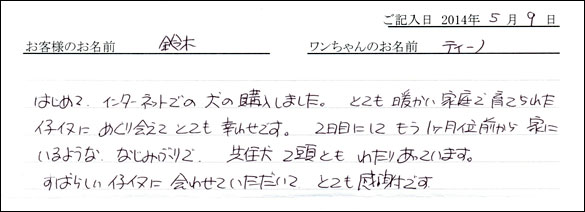 ご記入日 2014年 5 月 9 日
お客様のお名前 鈴木 ワンちゃんのお名前 ティーノ
はじめて、インターネットでの犬の購入しました。とても暖かい家庭で育てられた
仔イヌにめぐり会えてとても幸せです。2日目にして もう1ヶ月位前から家に
いるような、なじみっぷりで、先住犬2頭ともわたりあっています。
すばらしい仔イヌに会わせていただいて とても感謝です